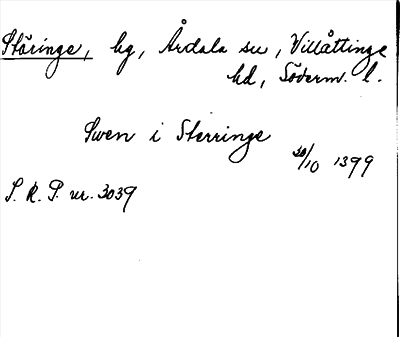 Stäringe, hg, Årdala sn, Villåttinge
hd, Söderm. l.
Swen i Sterringe
20/10 1399
S. R. P. nr. 3039